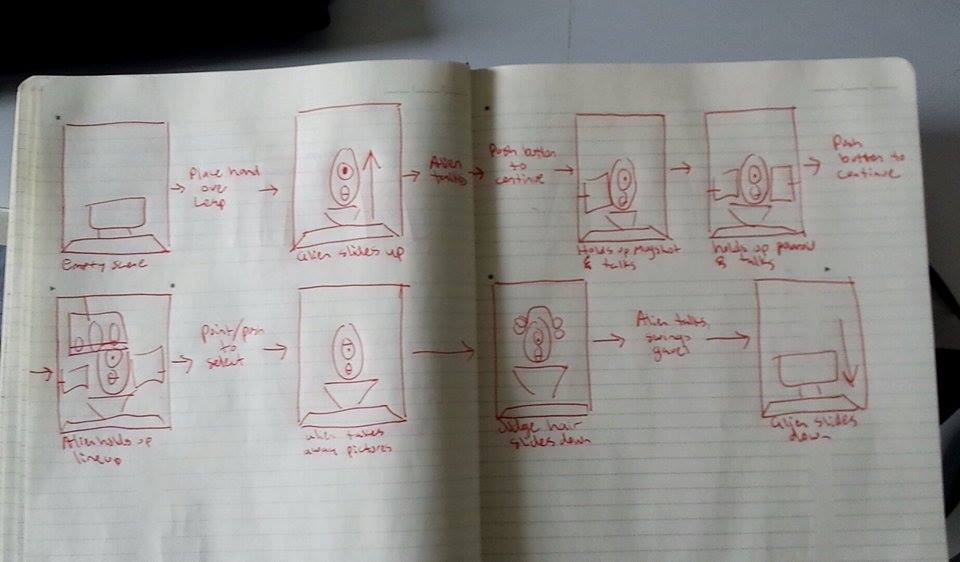 Empty scene
Place hand
over
Leap
alien slides up
Alien
talks
Push button
to
continue
Holds up Mugshot
& talks
holds up
& talks
Push
button to
continue
Alien holds up
lineup
point/push
to
select
alien takes
away pictures
Judge hair
slides down
Alien talks,
swings
gavel
alien slides
down